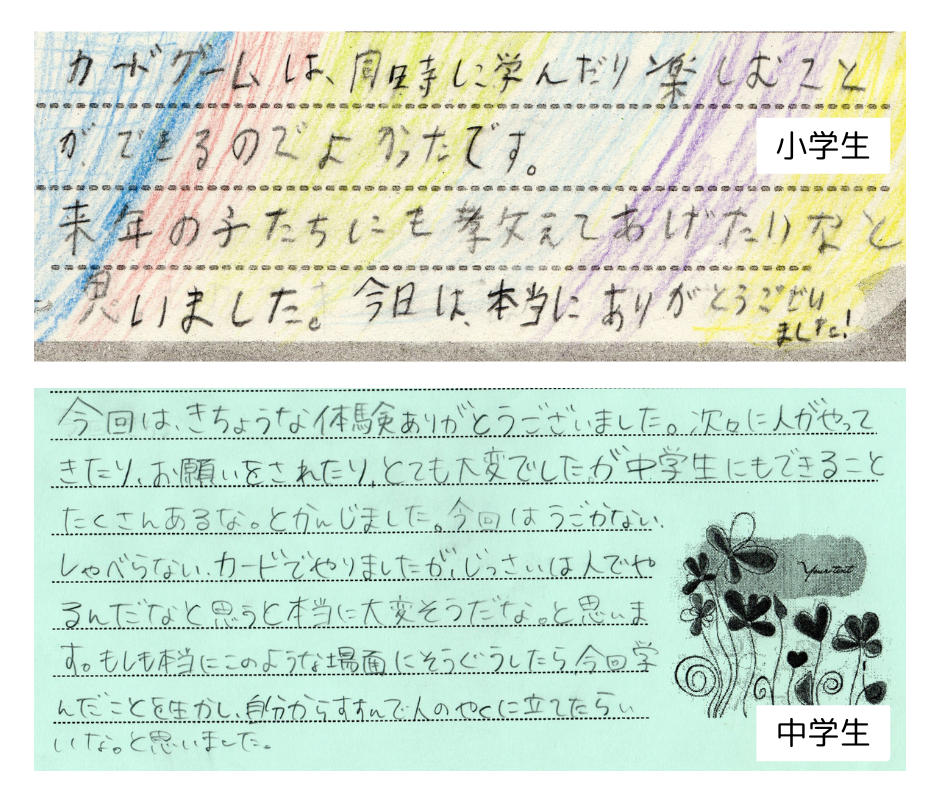 カードゲームは、同時に学んだり楽しむこと
ができるのでよかたです。
小学生
来年の子たちにも教えてあげたいなと
思いました。今日は、本当にありがとうござい
ました!
今回は、きちょうな体験ありがとうございました。次々に人がやって
きたり、お願いをされたり、とても大変でしたが中学生にもできること
たくさんあるな。とかんじました。今回はうごかない、
しゃべらない、カードでやりましたが、じっさいは人でや
るんだなと思うと本当に大変そうだな。と思いま
す。もしも本当にこのような場面にそうぐうしたら、今回学
んだことを生かし、自分からすすんで人のやくに立てたらい
いな。と思いました。
Your text
中学生